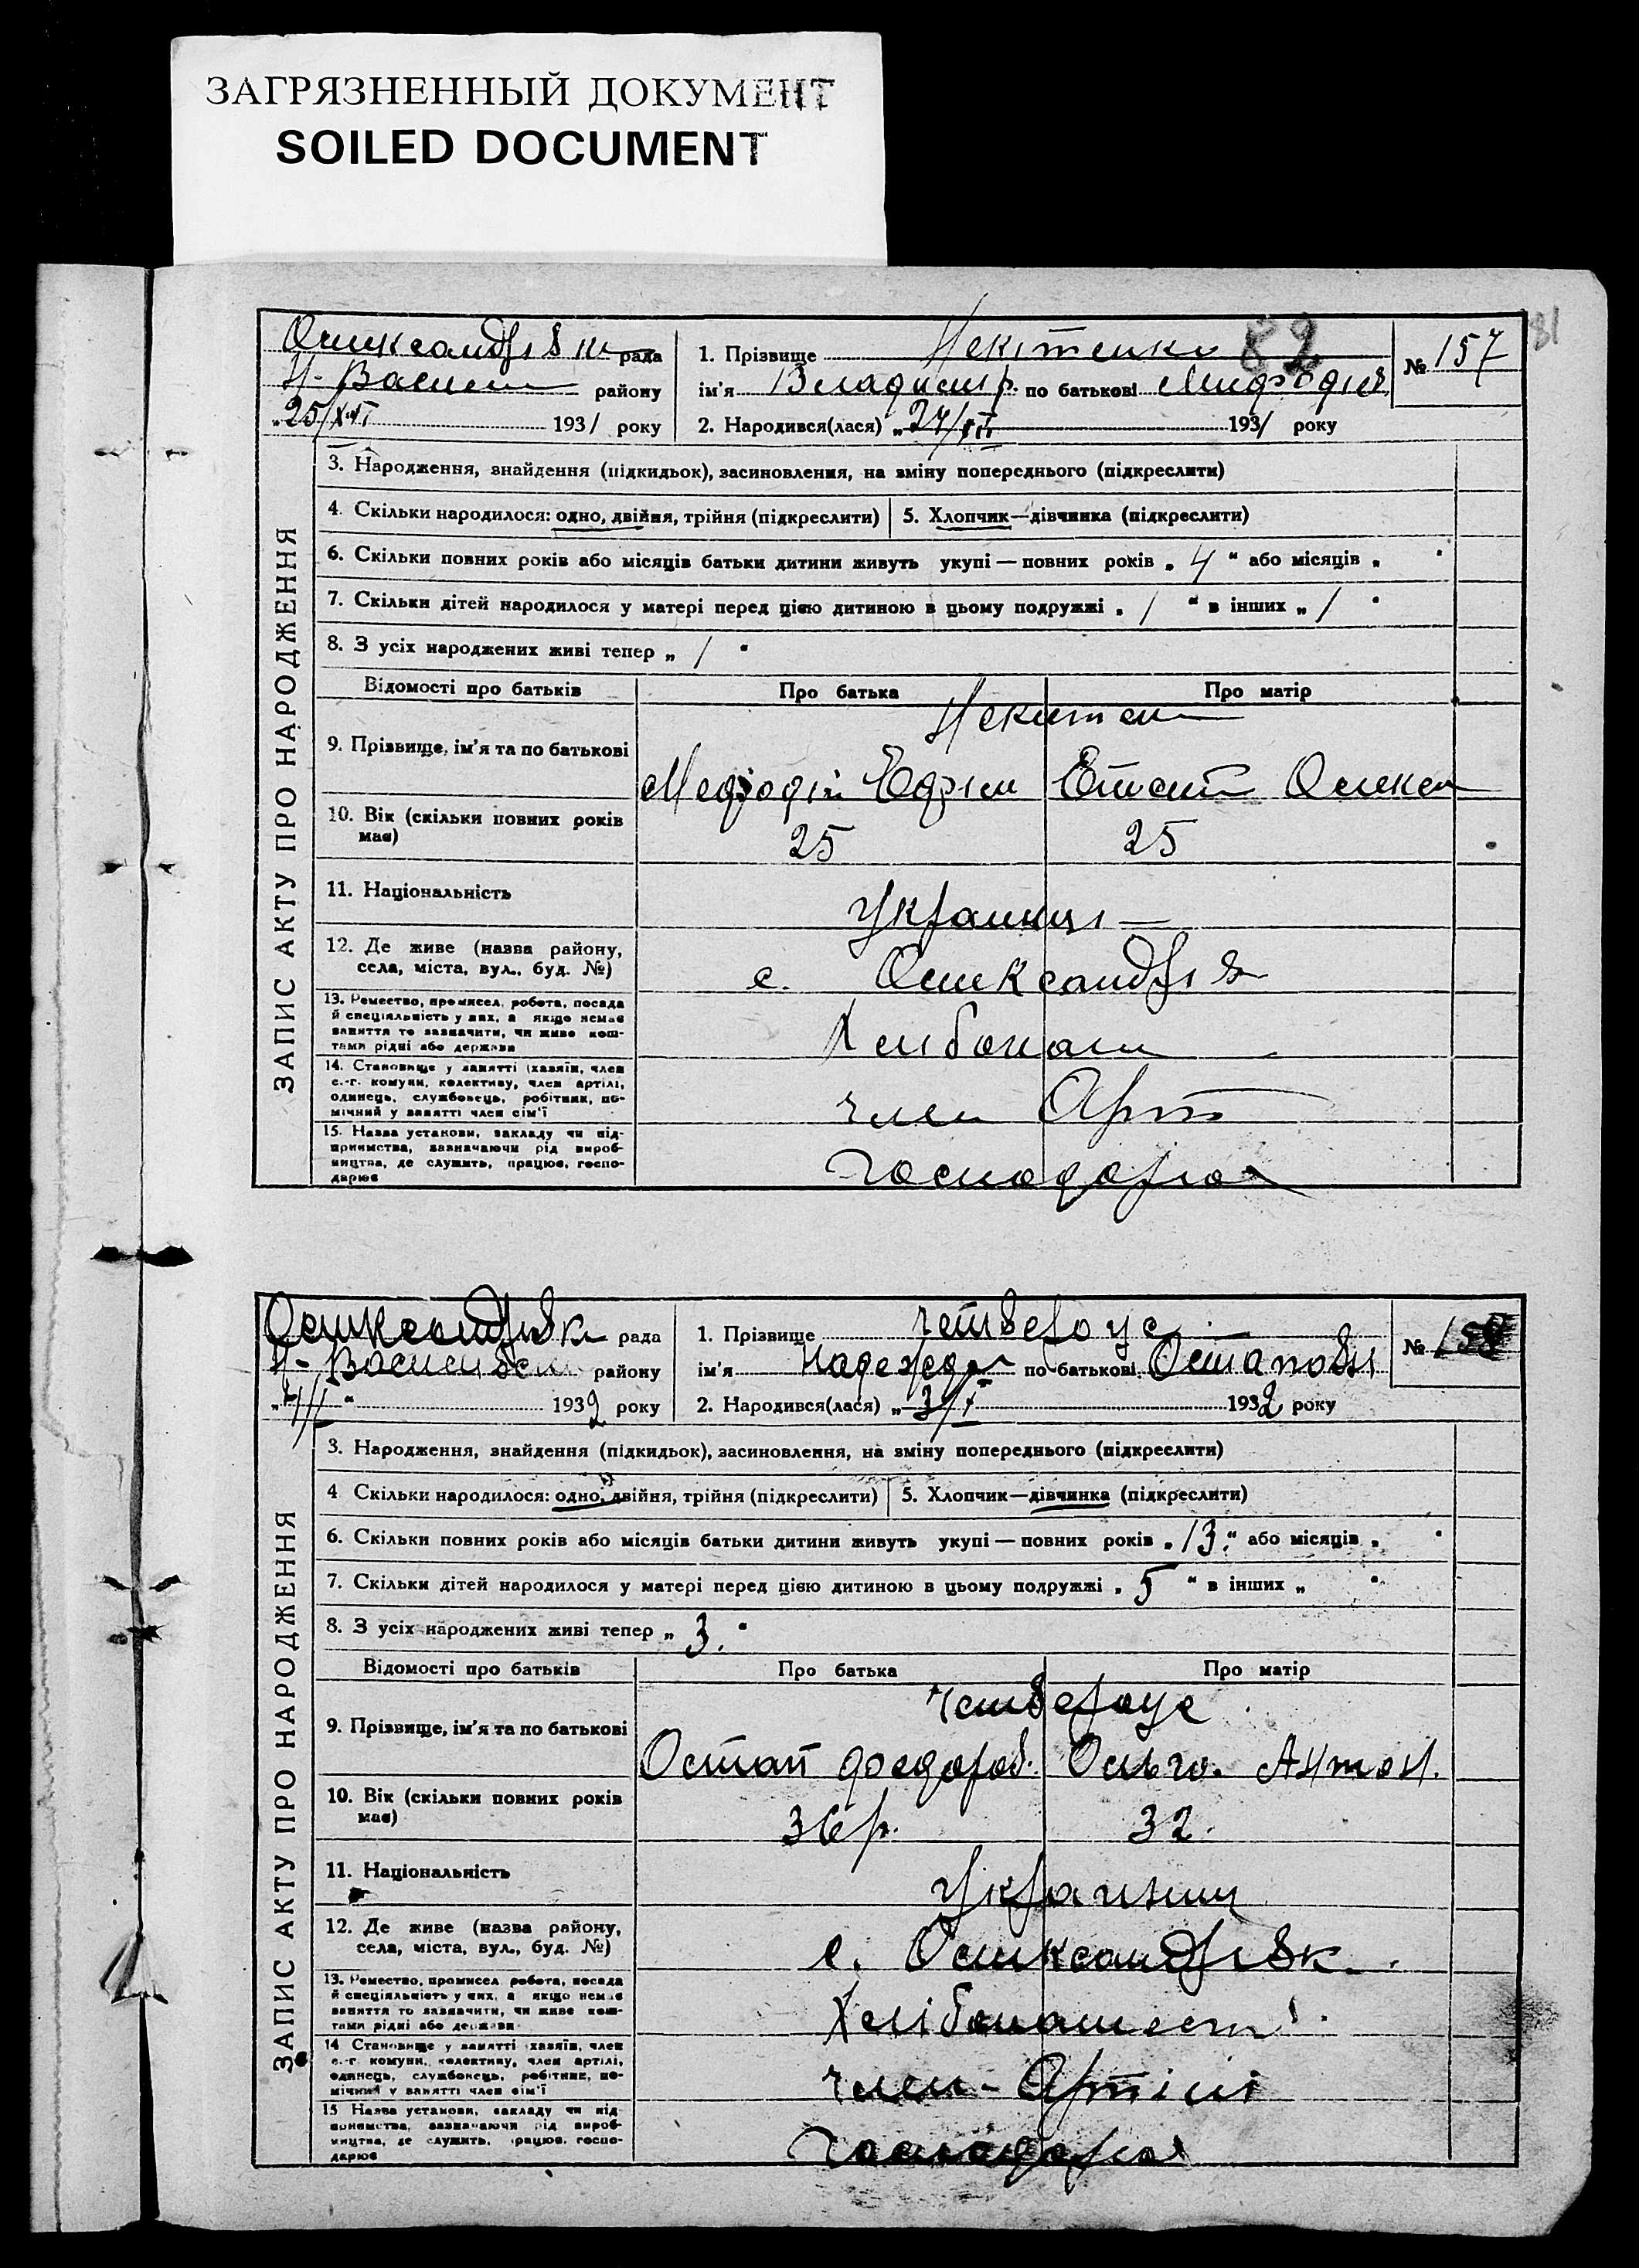 ЗАГРЯЗНЕННЫЙ ДОКУМЕНТ
SOILED DOCUMENT
82
81
рада
району
25/XII 1931 року
1. Прізвище
ім'я Владимір по батькові
2. Народився(лася) „24/XII 1931 року
№ 157
ЗАПИС АКТУ ПРО НАРОДЖЕННЯ
3. Народження, знайдення (підкидьок), засиновлення, на зміну попереднього (підкреслити)
4. Скільки народилося: одно, двійня, трійня (підкреслити)
5. Хлопчик—дівчинка (підкреслити)
6. Скільки повних років або місяців батьки дитини живуть укупі — повних років „ 4 “ або місяців „ “
7. Скільки дітей народилося у матері перед цією дитиною в цьому подружжі „ / “ в інших „ / “
8. З усіх народжених живі тепер „ / “
Відомості про батьків
Про батька
Про матір
9. Прізвище, ім'я та по батькові
10. Вік (скільки повних років має)
25
25
11. Національність
12. Де живе (назва району,
села, міста, вул., буд. №)
с.
13. Ремество, промисел, робота, посада
й спеціяльність у них, а якщо немає
заняття то зазначити, чи живе кош-
тами рідні або держави
14. Становище у занятті (хазяїн, член
с.-г. комуни, колективу, член артілі,
одинець, службовець, робітник, по-
мічний у занятті член сім'ї
член Арт
15. Назва установи, закладу чи під-
приємства, зазначаючи рід вироб-
ництва, де служить, працює, госпо-
дарює
Олександрівка рада
району
1932 року
1. Прізвище Четвероус
ім'я Надежда по батькові Остапов
2. Народився(лася) „3/I 1932 року
№ 158
ЗАПИС АКТУ ПРО НАРОДЖЕННЯ
3. Народження, знайдення (підкидьок), засиновлення, на зміну попереднього (підкреслити)
4 Скільки народилося: одно, двійня, трійня (підкреслити)
5. Хлопчик—дівчинка (підкреслити)
6. Скільки повних років або місяців батьки дитини живуть укупі — повних років „ 13 “ або місяців „ “
7. Скільки дітей народилося у матері перед цією дитиною в цьому подружжі „ 5 “ в інших „ “
8. З усіх народжених живі тепер „ 3. “
Відомості про батьків
Про батька
Про матір
Четвероус
9. Прізвище, ім'я та по батькові
Остап Федоров. Ольга Антон.
10. Вік (скільки повних років має)
36 р.
32.
11. Національність
12. Де живе (назва району,
села, міста, вул., буд. №)
с. Олександрівк.
13. Ремество, промисел робота, посада
й спеціяльність у них, а якщо немає
заняття то зазначити, чи живе кош-
тами рідні або держави
14 Становище у занятті хазяїн, член
с.-г. комуни, колективу, член артілі,
одинець, службовець, робітник, по-
мічний у занятті член сім'ї
член-Артілі
15 Назва установи, закладу чи під-
приємства, зазначаючи рід вироб-
ництва, де служить, працює, госпо-
дарює